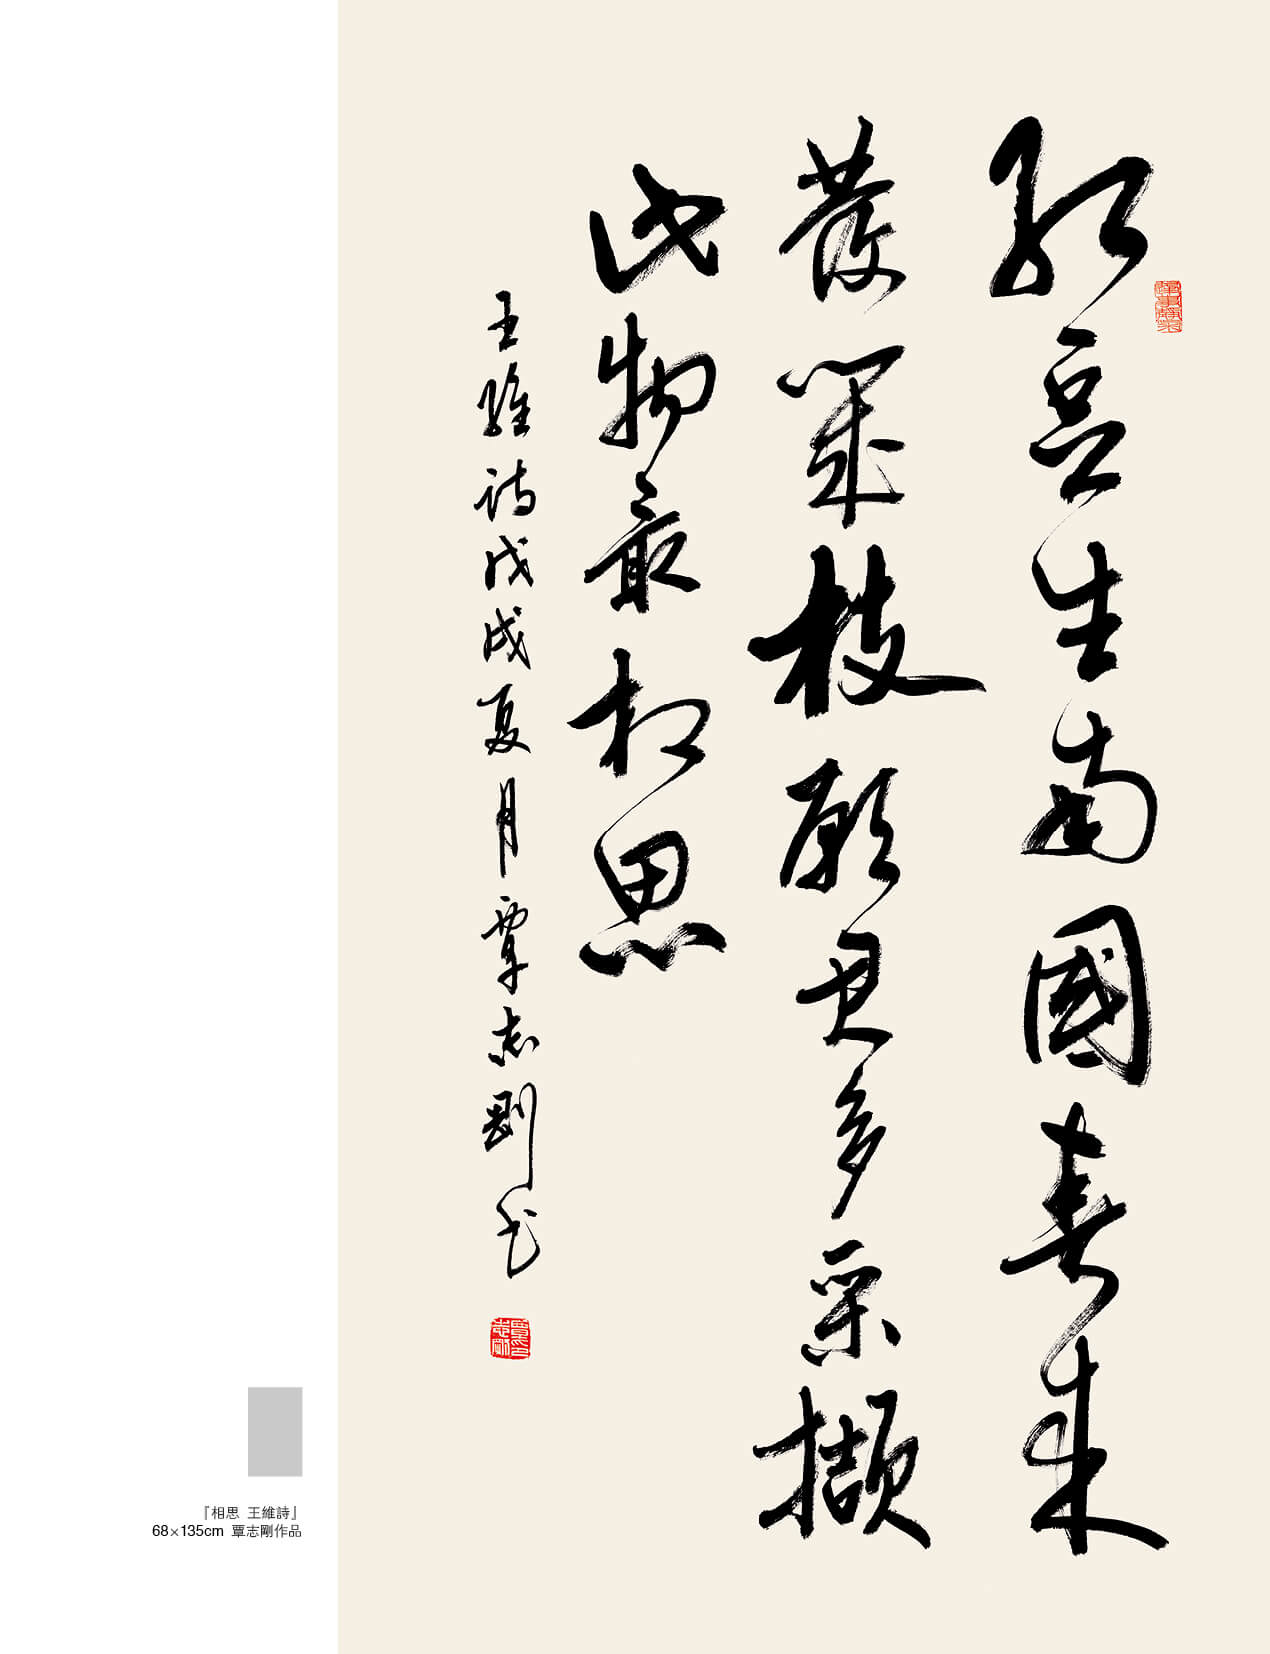 紅豆生南國春來
發幾枝願君多采擷
此物最相思
王維詩戊戌夏月覃志剛書
『相思 王維詩』
68×135cm 覃志剛作品